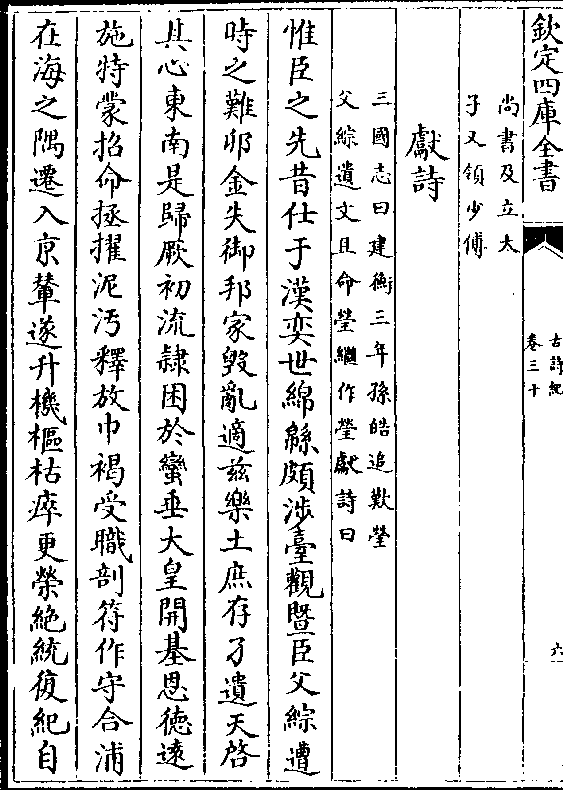 欽定四庫全書
古詩紀
卷三十
六
尚書及立太
子又領少傅
獻詩
三國志曰建衡三年孫皓追歎瑩
父綜遺文且命瑩繼作瑩獻詩曰
惟臣之先昔仕于漢奕世綿緜頗涉臺觀暨臣父綜遭
時之難卯金失御邦家毀亂適兹樂土庶存孑遺天啓
其心東南是歸厥初流隸困於蠻垂大皇開基恩徳逺
施特蒙招命拯擢泥汚釋放巾褐受職剖符作守合浦
在海之隅遷入京輦遂升機樞枯瘁更榮絶統復紀自